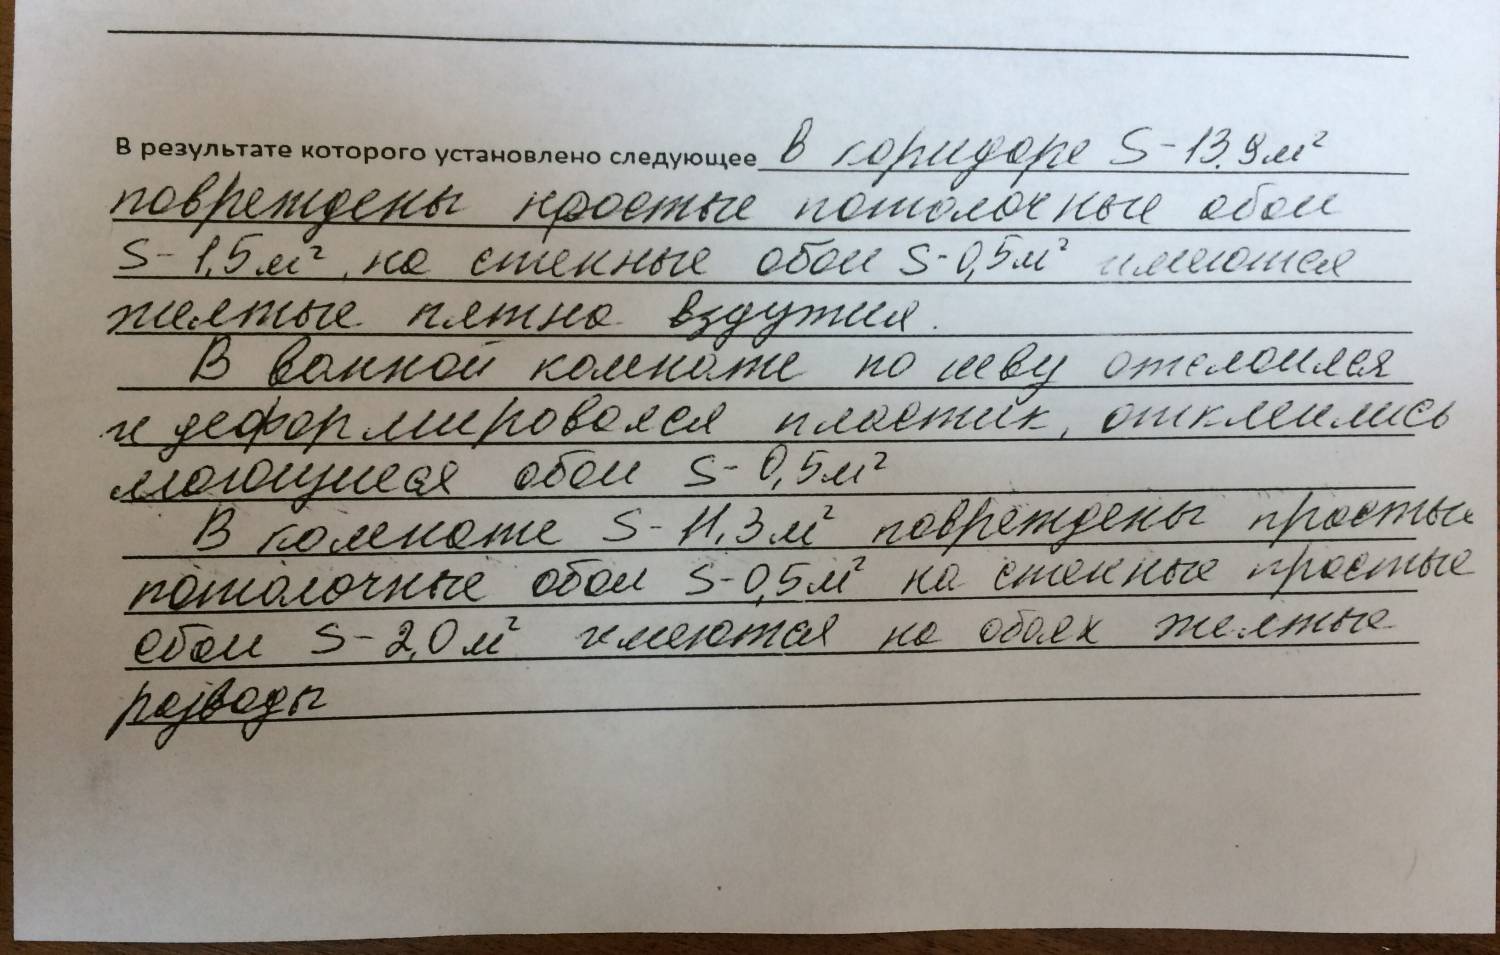 В результате которого установлено следующее в коридоре S-13.9м²
повреждены простые потолочные обои
S-1,5м², на стенные обои S-0,5м² имеются
желтые пятна вздутия.
В ванной комнате по шву отслоился
и деформировался пластик, отклеились
моющиеся обои S-0,5м²
В комнате S-11,3м² повреждены простые
потолочные обои S-0,5м² на стенные простые
обои S-2,0м² имеются на обоях желтые
разводы